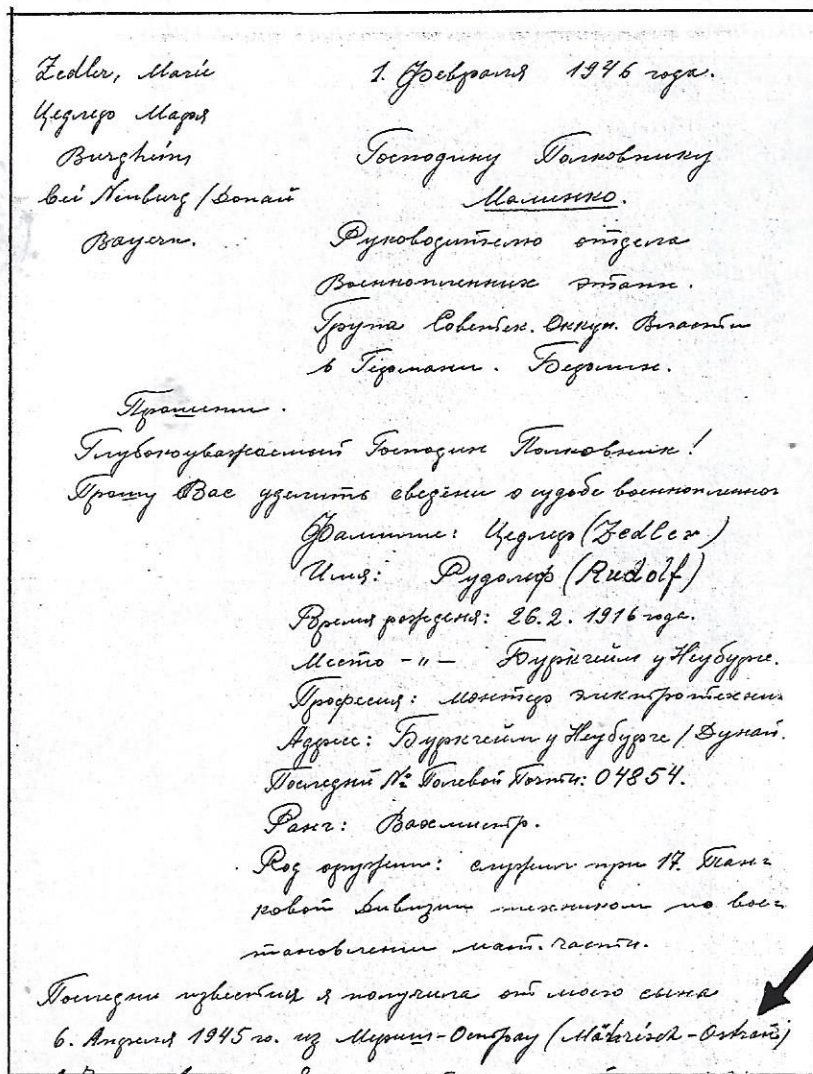 Zedler, Marie
1. Февраля 1946 года.
Цедлер Мария
Burgheim
bei Neuburg / Donau
Bayern.
Господину Полковнику
Малинко.
Руководителю отдела
Военнопленних этапн.
Група Советск. Оккуп. Власти
в Германи. Берлин.
Прошени.
Глубокоуважаемый Господин Полковник!
Прошу Вас уделить сведени о судьбе военнопленног
Фамилие: Цедлер (Zedler)
Имя: Рудолф (Rudolf)
Время рождения: 26. 2. 1916 года.
Место -"- Буркгейм у Неубурге.
Професия: монтер электротехни
Адрес: Буркгейм у Неубурге / Дунай.
Последни № Полевой Почти: 04854.
Ранг: Вахмистр.
Род оружии: служил при 17. Тан-
ковой дивизии техником по вос-
тановлении мат. части.
Последни известия я получила от моего сына
6. Апреля 1945 го. из Мериш-Острау (Mährisch-Ostrau)